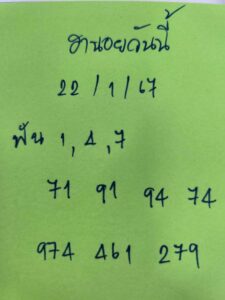 ฮานอยวันนี้
22 / 1 / 67
ฟัน 1, 4, 7
71 91 94 74
974 461 279